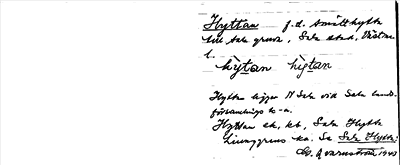 Hyttan f.d. smälthytta
till Sala gruva, Sala stad, Västm.
l.
hỳtan hỳtan
Hyttan ligger N Sala vid Sala lands-
församlings k-a.
Hyttan ek, kt, Sala Hytte
Ljusgruvs ka. Se Sala Hytta:
G. Qvarnström 1943